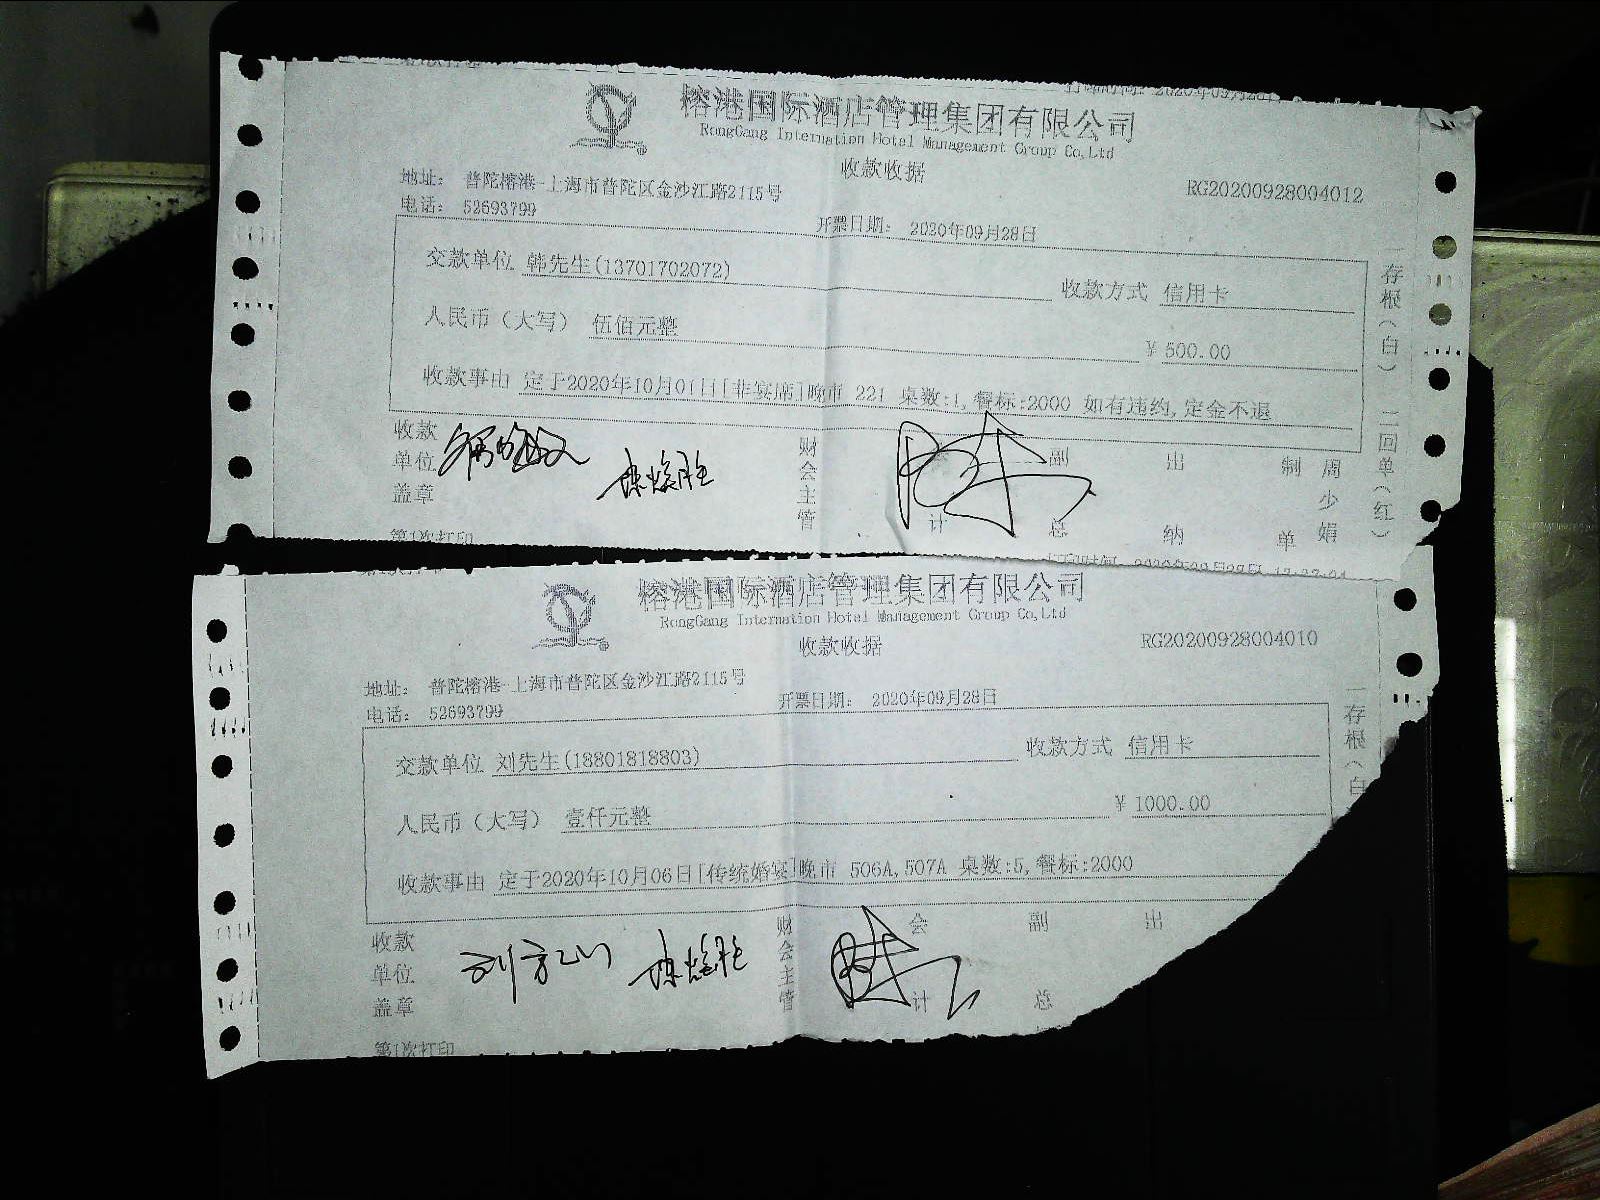 榕港国际酒店管理集团有限公司
RongGang Internation Hotel Management Group Co,Ltd
收款收据
地址: 普陀榕港-上海市普陀区金沙江路2115号
RG20200928004012
电话: 52693799
开票日期: 2020年09月28日
交款单位 韩先生(13701702072)
收款方式 信用卡
人民币(大写) 伍佰元整
¥ 500.00
收款事由 定于2020年10月01日[非宴席]晚市 221 桌数:1,餐标:2000 如有违约,定金不退
收款单位盖章
财会主管
计
副总
出纳
制单
周少娟
一存根(白) 二回单(红)
第1次打印
榕港国际酒店管理集团有限公司
RongGang Internation Hotel Management Group Co,Ltd
收款收据
RG20200928004010
地址: 普陀榕港-上海市普陀区金沙江路2115号
电话: 52693799
开票日期: 2020年09月28日
交款单位 刘先生(18801818803)
收款方式 信用卡
人民币(大写) 壹仟元整
¥ 1000.00
收款事由 定于2020年10月06日[传统婚宴]晚市 506A,507A 桌数:5,餐标:2000
收款单位盖章
财会主管
会计
副总
出
一存根(白
第1次打印